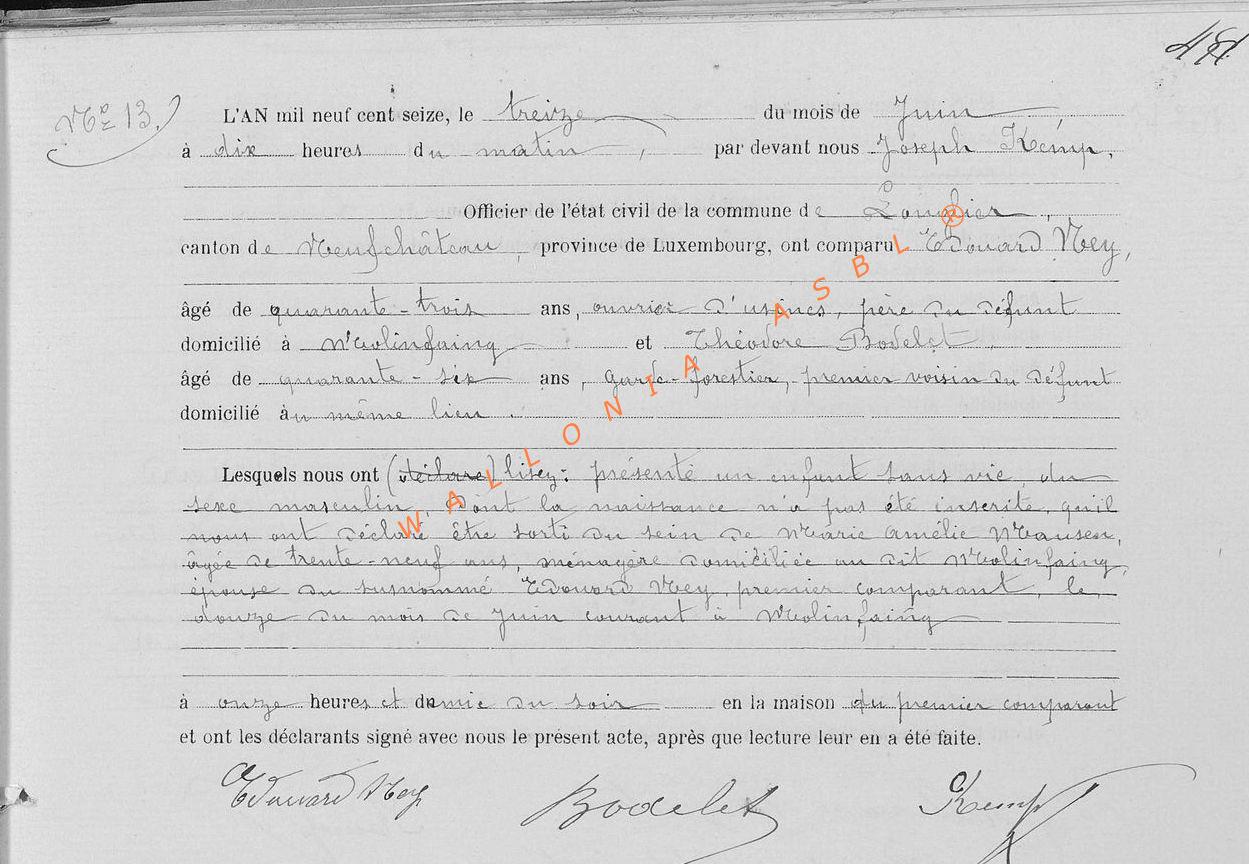 48
Nº 13.
L'AN mil neuf cent seize, le treize du mois de Juin,
à dix heures du matin, par devant nous Joseph Kemp,
Officier de l'état civil de la commune de Longlier,
canton de Neufchâteau, province de Luxembourg, ont comparu Edouard Ney,
âgé de quarante-trois ans, ouvrier d'usines, père du défunt
domicilié à Molinfaing et Théodore Bodelet,
âgé de quarante-six ans, garde-forestier, premier voisin du défunt
domicilié au même lieu.
Lesquels nous ont (déclaré) lisez: présenté un enfant sans vie, du
sexe masculin, dont la naissance n'a pas été inscrite, qu'il
nous ont déclaré être sorti du sein de Marie Amélie Mausen,
âgée de trente-neuf ans, ménagère domiciliée au dit Molinfaing,
épouse du susnommé Edouard Ney, premier comparant, le
douze du mois de Juin courant à Molinfaing
à onze heures et demie du soir en la maison du premier comparant
et ont les déclarants signé avec nous le présent acte, après que lecture leur en a été faite.
Edouard Ney Bodelet Kemp
WALLONIA ASBL ®